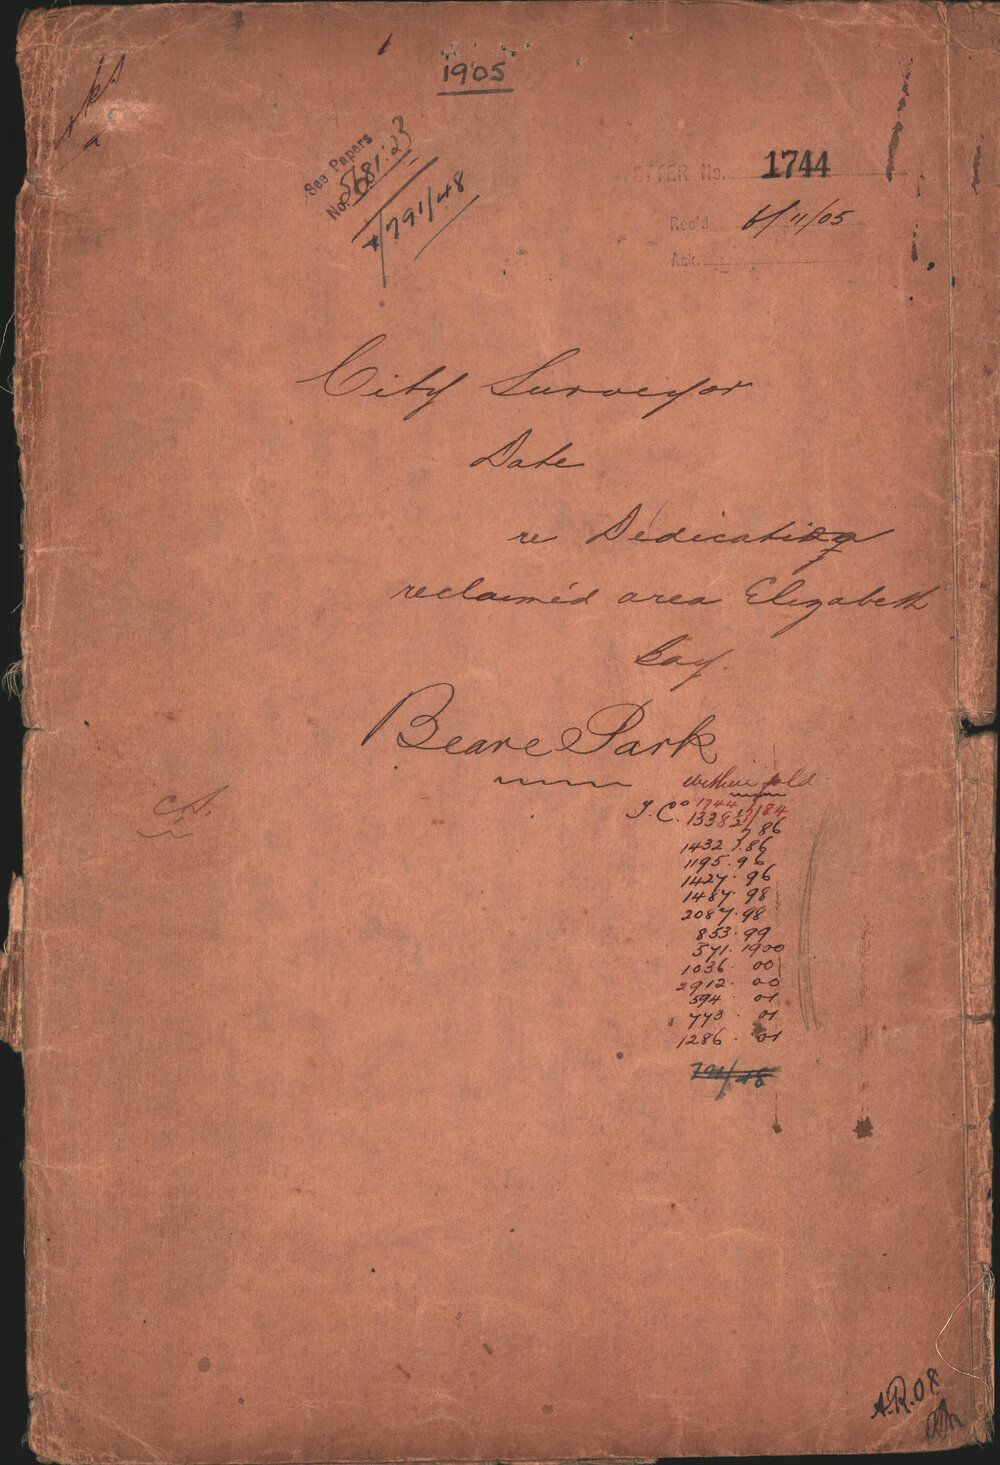 1905
See Papers
No. 5681.23
791/48
LETTER No. 1744
Rec'd 6/11/05
Ack.
City Surveyor
Date
re Dedication
reclaim'd area Elizabeth
Bay.
Beare Park
within fold
T.C. 1744 /84
1338 86
1432 . 86
1195 . 96
1427 . 96
1487 . 98
2087 . 98
853 . 99
571 . 1900
1036 . 00
2912 . 00
594 . 01
773 . 01
1286 . 01
791/48
A.R.08